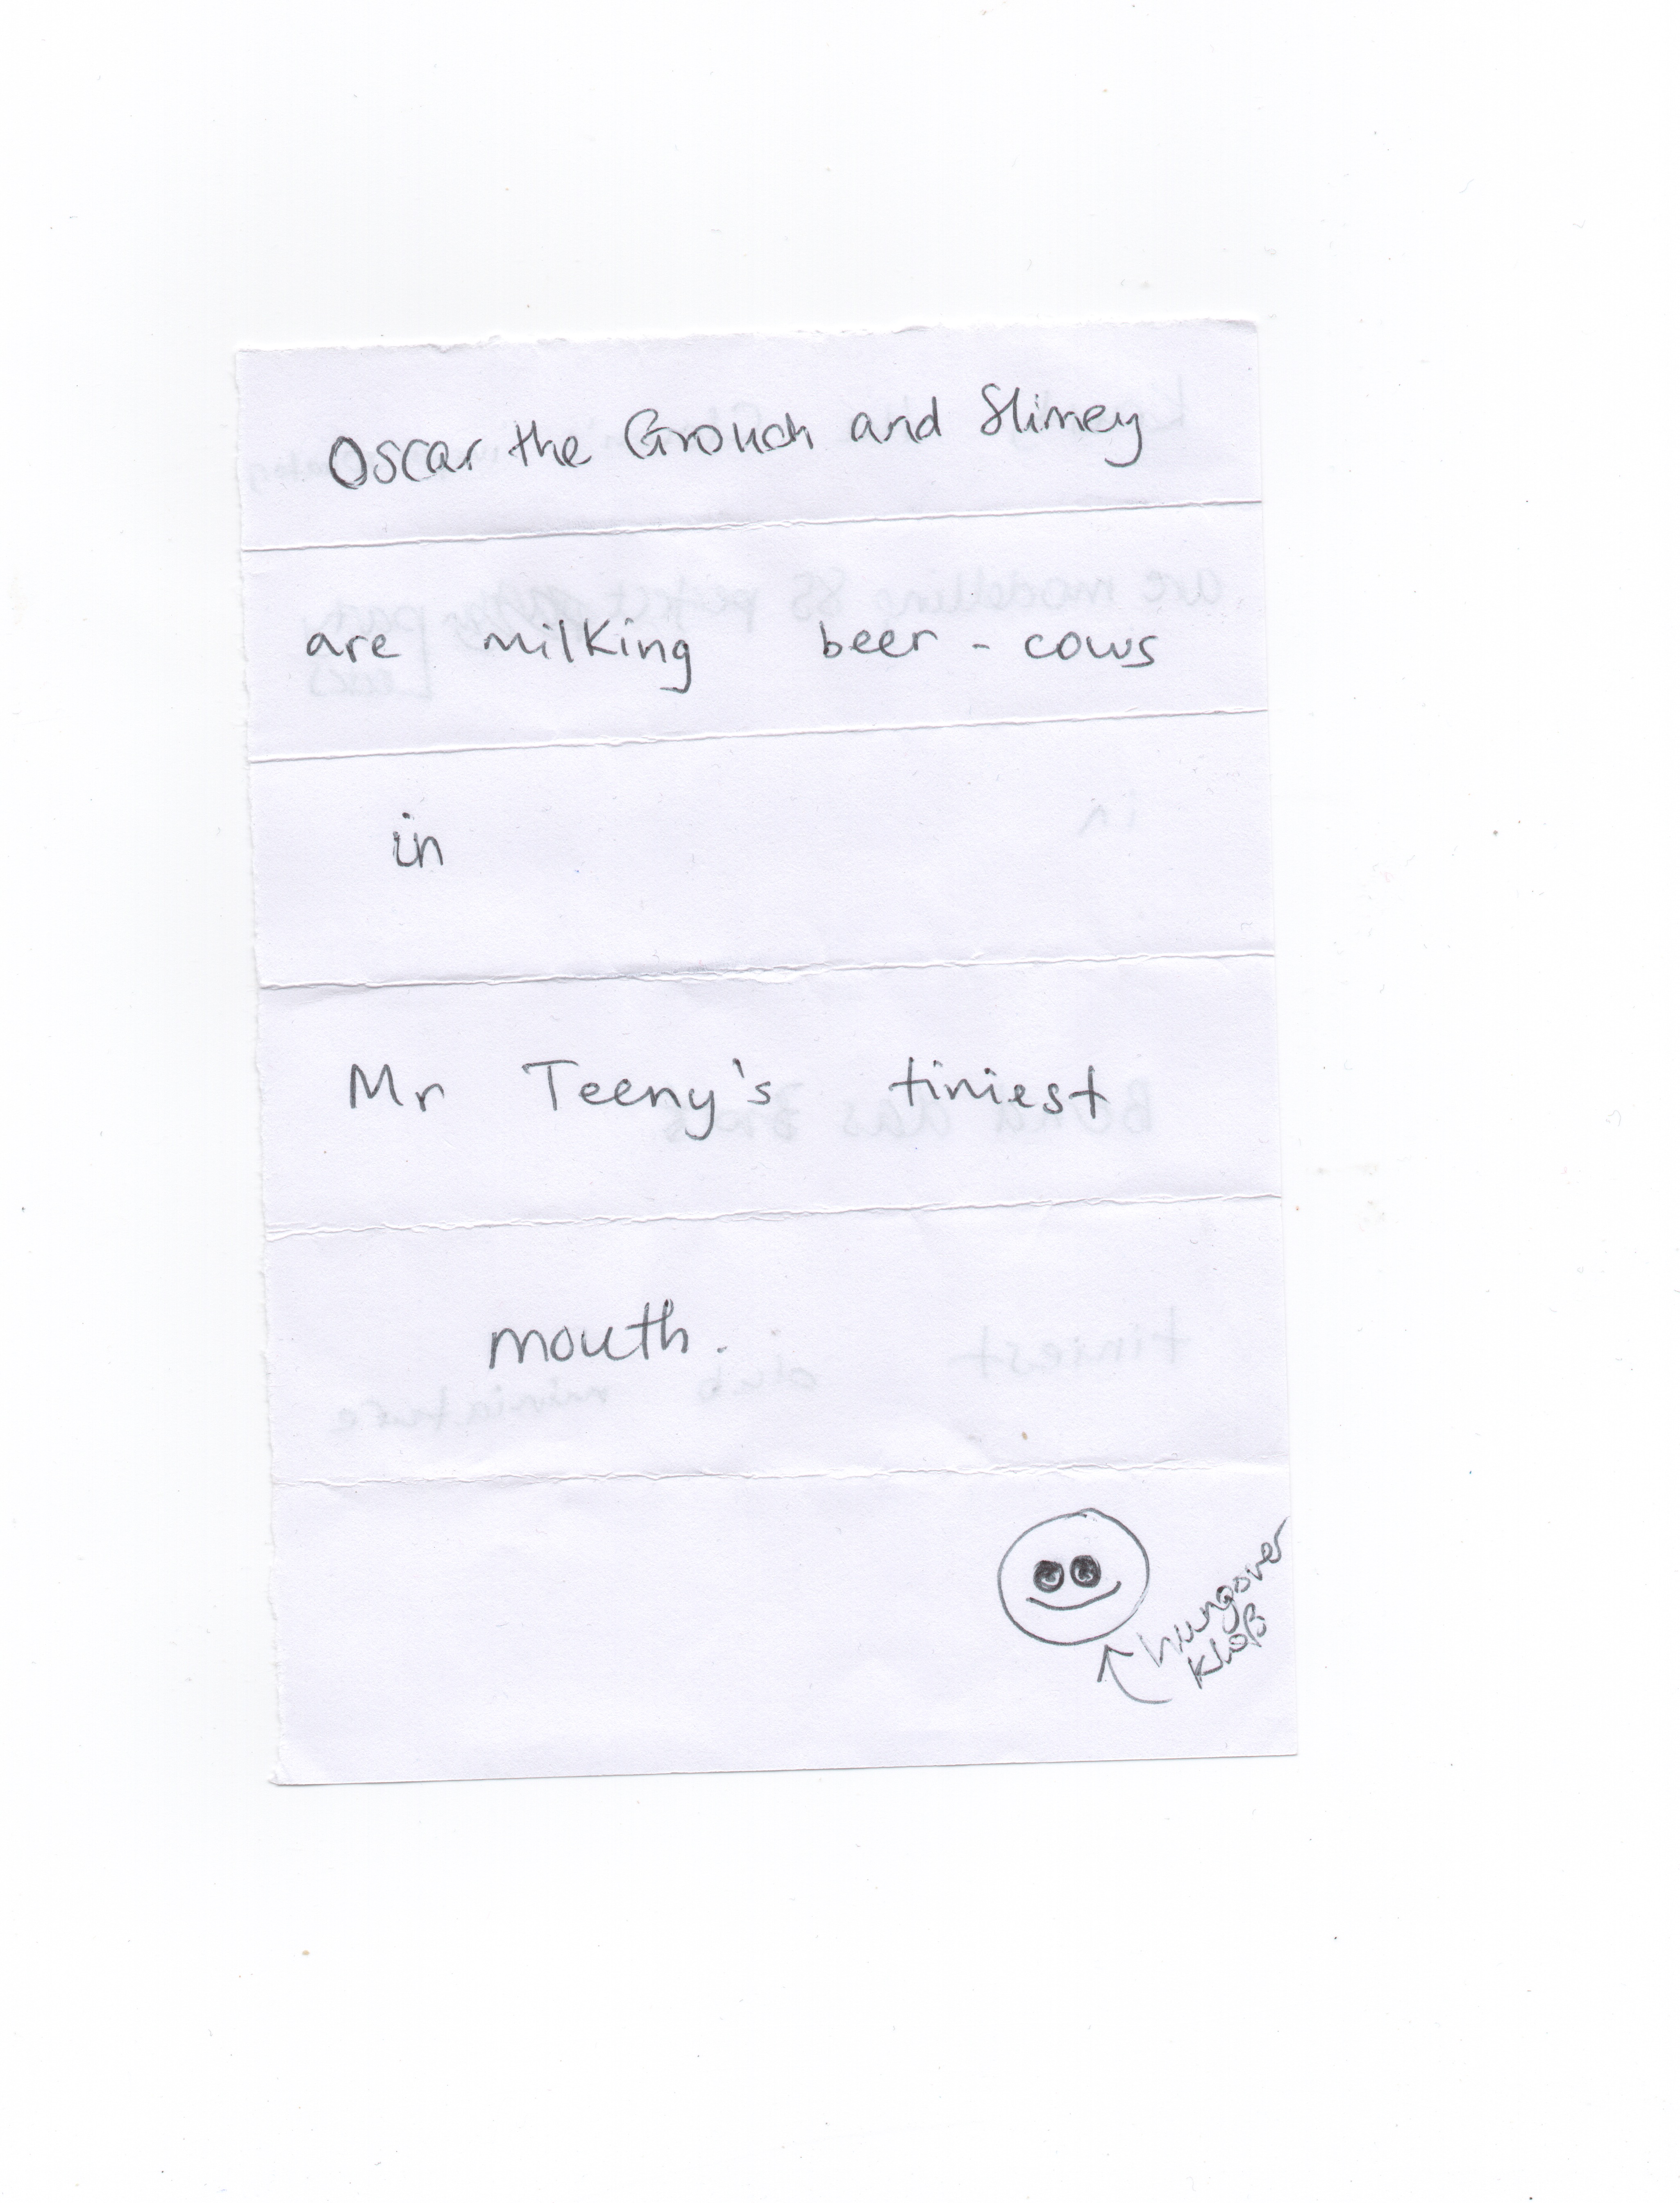 Oscar the Grouch and Slimey
are milking beer - cows
in
Mr Teeny's tiniest
mouth.
hungover